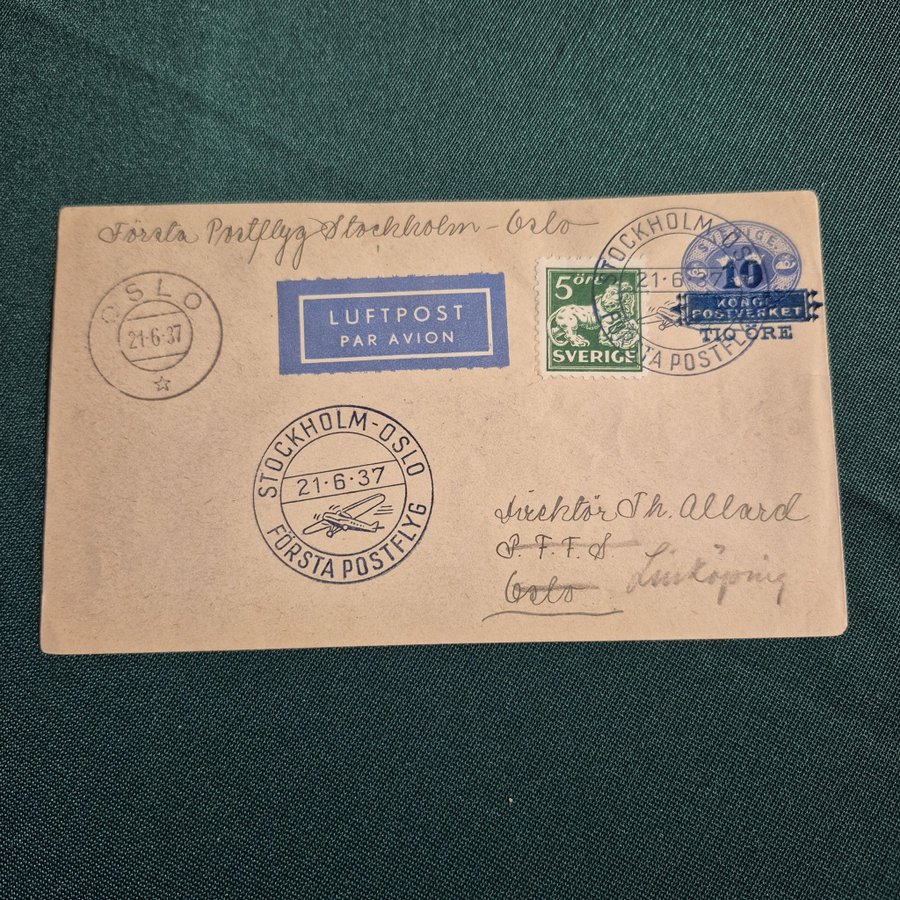 Första Postflyg Stockholm – Oslo
OSLO
21·6·37
LUFTPOST
PAR AVION
5 öre
SVERIGE
STOCKHOLM-OS
21·6·37
STA POSTFLY
SVERIGE
10
KONGL.
POSTVERKET
TIO ÖRE
STOCKHOLM-OSLO
21·6·37
FÖRSTA POSTFLYG
Direktör Th. Allard
P. F. F. S
Oslo Linköping